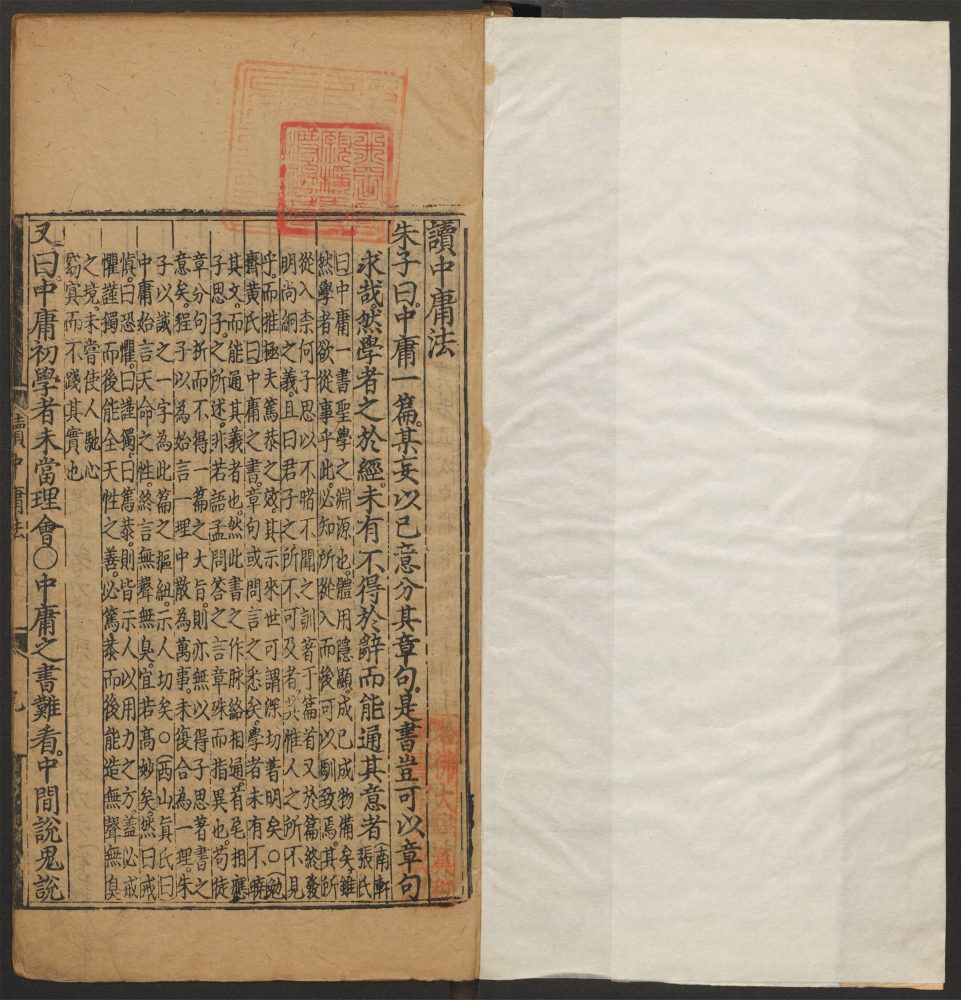 讀中庸法
朱子曰。中庸一篇。某妄以己意分其章句。是書豈可以章句
求哉。然學者之於經。未有不得於辭而能通其意者
南軒張氏
曰中庸一書聖學之淵源也。體用隱顯。成己成物備矣。雖
然學者欲從事乎此。必知所從入而後可以馴致焉。其所
從入柰何子思以不睹不聞之訓著于篇首又於篇終發
明尚絅之義。且曰君子之所不可及者。其惟人之所不見
乎。而推極夫篤恭之效。其示來世可謂深切著明矣。○勉
齋黃氏曰中庸之書。章句或問言之悉矣。學者未有不曉
其文。而能通其義者也。然此書之作脉絡相通。首尾相應
子思子之所述。非若語孟問答之言章殊而指異也。苟徒
章分句析而不得一篇之大旨。則亦無以得子思著書之
意矣。程子以為始言一理中散為萬事。末復合為一理。朱
子以誠之一字為此篇之樞紐。示人切矣。○西山眞氏曰
中庸始言天命之性。終言無聲無臭。宜若高妙矣。然曰戒
慎。曰恐懼。曰謹獨。曰篤恭。則皆示人以用力之方。蓋必戒
懼謹獨而後能全天性之善。必篤恭而後能造無聲無臭
之境。未嘗使人馳心
窈冥而不踐其實也
又曰。中庸初學者未當理會○中庸之書難看。中間說鬼說
讀中庸法